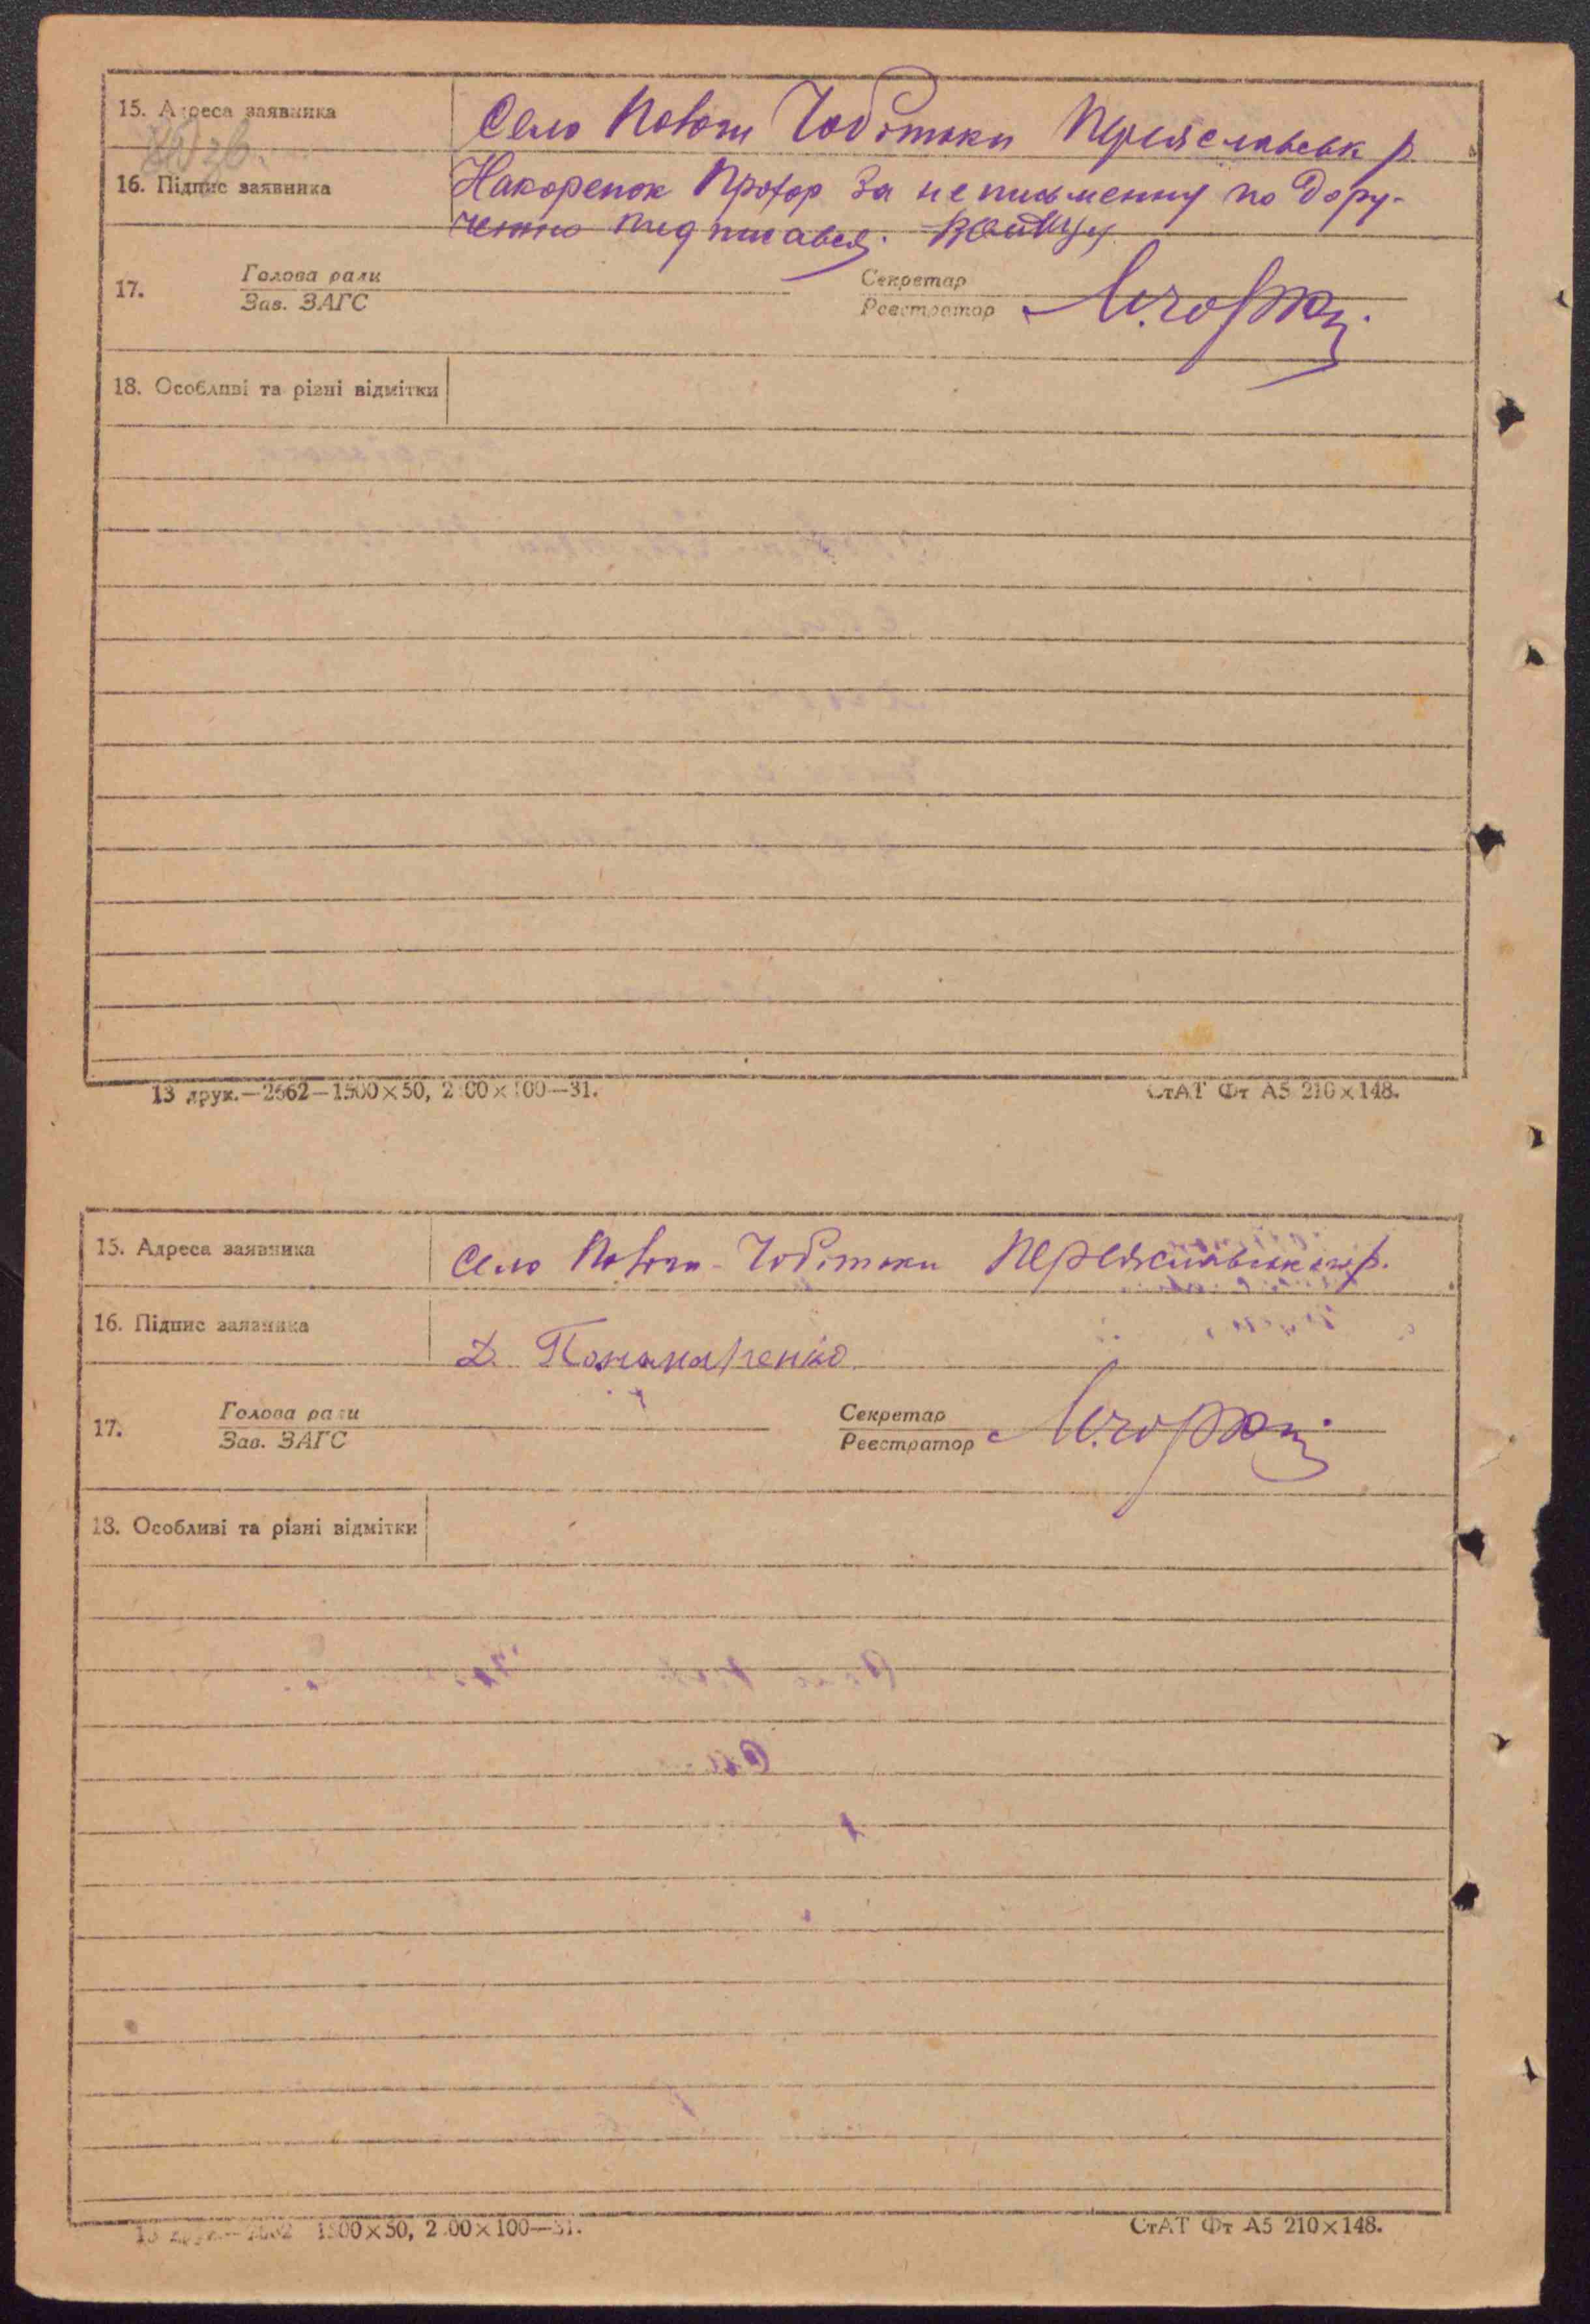 15. Адреса заявника
Село Пологи Чобітьки Переяславськ р.
16. Підпис заявника
Накоренок Прохор За неписьменну по дору-
ченню підписався.
17. Голова ради
Зав. ЗАГС
Секретар
Реєстратор
18. Особливі та різні відмітки
13 друк.—2662—1500×50, 2100×100—31.
СтАТ Фт А5 210×148.
15. Адреса заявника
Село Пологи-Чобітьки Переяславськ р.
16. Підпис заявника
Д. Понамаренко
17. Голова ради
Зав. ЗАГС
Секретар
Реєстратор
18. Особливі та різні відмітки
13 друк.—2662 1500×50, 2100×100—31.
СтАТ Фт А5 210×148.